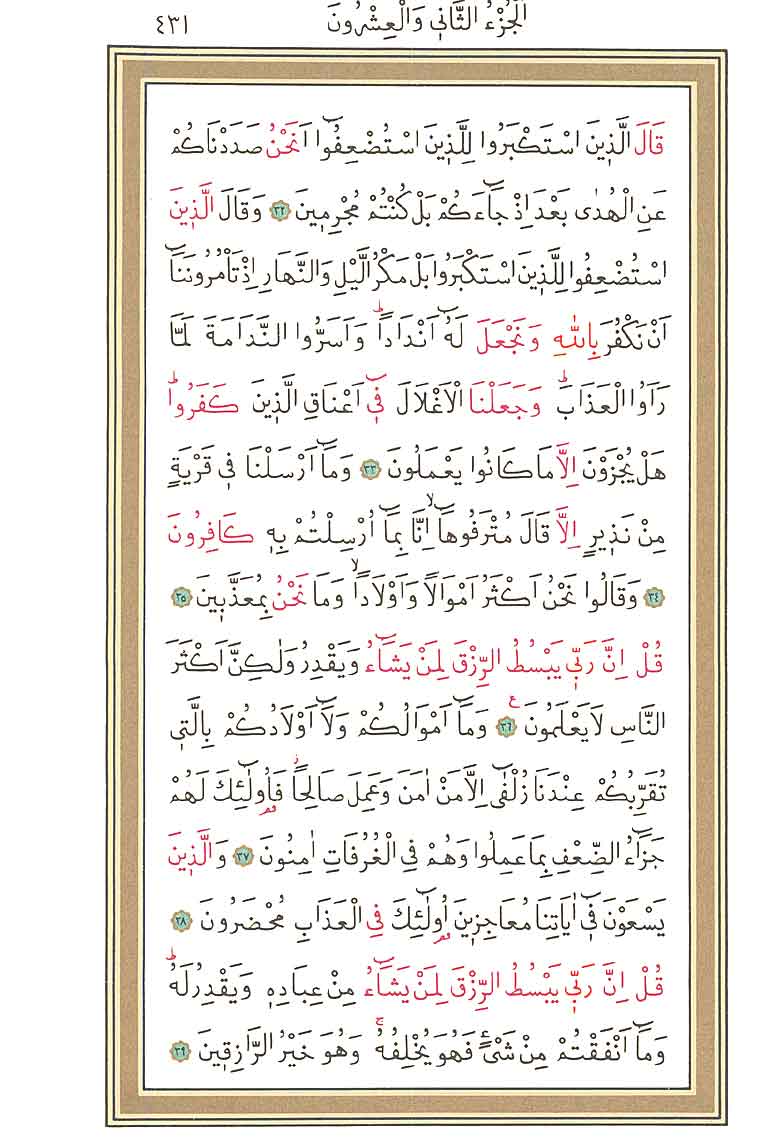 اَلْجُزْءُ الثَّانِي وَالْعِشْرُونَ ٤٣١
قَالَ الَّذ۪ينَ اسْتَكْبَرُوا لِلَّذ۪ينَ اسْتُضْعِفُٓوا اَنَحْنُ صَدَدْنَاكُمْ
عَنِ الْهُدٰى بَعْدَ اِذْ جَٓاءَكُمْ بَلْ كُنْتُمْ مُجْرِم۪ينَ ٣٢ وَقَالَ الَّذ۪ينَ
اسْتُضْعِفُوا لِلَّذ۪ينَ اسْتَكْبَرُوا بَلْ مَكْرُ الَّيْلِ وَالنَّهَارِ اِذْ تَأْمُرُونَنَٓا
اَنْ نَكْفُرَ بِاللّٰهِ وَنَجْعَلَ لَهُٓ اَنْدَاداًۜ وَاَسَرُّوا النَّدَامَةَ لَمَّا
رَاَوُا الْعَذَابَۜ وَجَعَلْنَا الْاَغْلَالَ ف۪ٓي اَعْنَاقِ الَّذ۪ينَ كَفَرُواۜ
هَلْ يُجْزَوْنَ اِلَّا مَا كَانُوا يَعْمَلُونَ ٣٣ وَمَٓا اَرْسَلْنَا ف۪ي قَرْيَةٍ
مِنْ نَذ۪يرٍ اِلَّا قَالَ مُتْرَفُوهَٓاۙ اِنَّا بِمَٓا اُرْسِلْتُمْ بِه۪ كَافِرُونَ
٣٤ وَقَالُوا نَحْنُ اَكْثَرُ اَمْوَالاً وَاَوْلَاداًۙ وَمَا نَحْنُ بِمُعَذَّب۪ينَ ٣٥
قُلْ اِنَّ رَبّ۪ي يَبْسُطُ الرِّزْقَ لِمَنْ يَشَٓاءُ وَيَقْدِرُ وَلٰكِنَّ اَكْثَرَ
النَّاسِ لَا يَعْلَمُونَ ٣٦ ع وَمَٓا اَمْوَالُكُمْ وَلَٓا اَوْلَادُكُمْ بِالَّت۪ي
تُقَرِّبُكُمْ عِنْدَنَا زُلْفٰٓى اِلَّا مَنْ اٰمَنَ وَعَمِلَ صَالِحاًۘ فَاُو۬لٰٓئِكَ لَهُمْ
جَزَٓاءُ الضِّعْفِ بِمَا عَمِلُوا وَهُمْ فِي الْغُرُفَاتِ اٰمِنُونَ ٣٧ وَالَّذ۪ينَ
يَسْعَوْنَ ف۪ٓي اٰيَاتِنَا مُعَاجِز۪ينَ اُو۬لٰٓئِكَ فِي الْعَذَابِ مُحْضَرُونَ ٣٨
قُلْ اِنَّ رَبّ۪ي يَبْسُطُ الرِّزْقَ لِمَنْ يَشَٓاءُ مِنْ عِبَادِه۪ وَيَقْدِرُ لَهُۜ
وَمَٓا اَنْفَقْتُمْ مِنْ شَيْءٍ فَهُوَ يُخْلِفُهُۚ وَهُوَ خَيْرُ الرَّازِق۪ينَ ٣٩